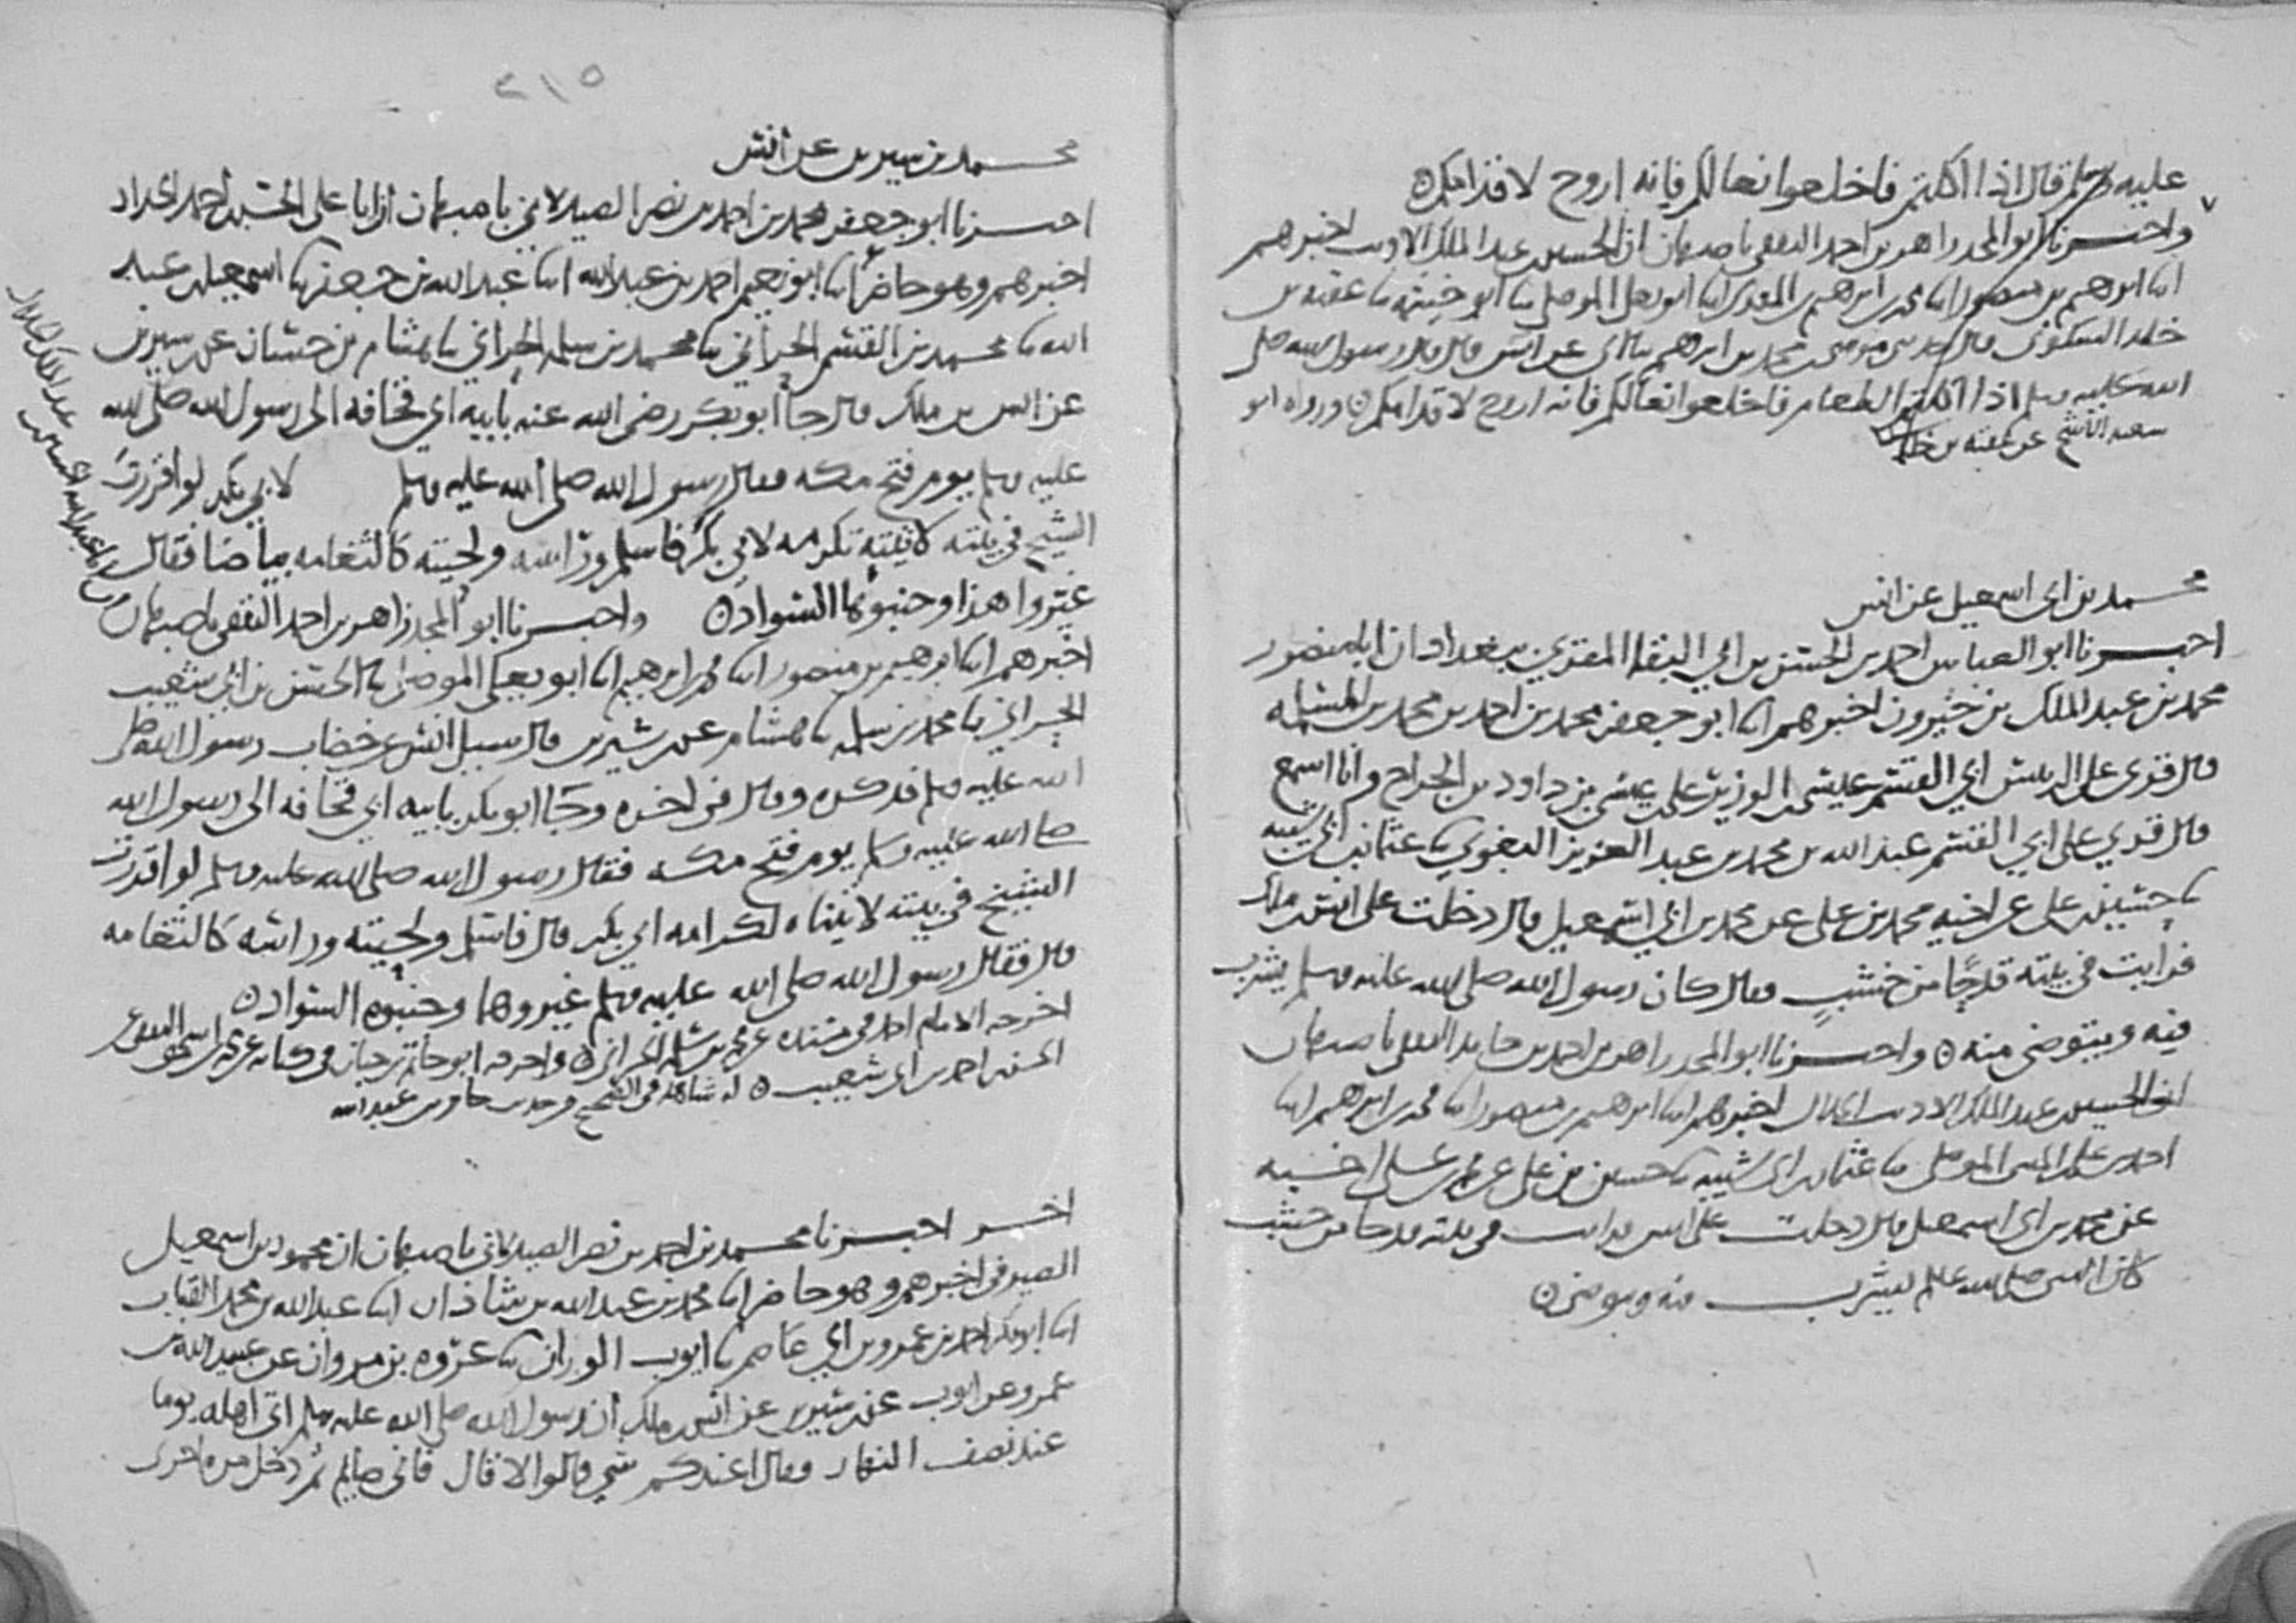 عليه وسلم قال اذا اكلتم فاخلعوا نعالكم فانه اروح لاقدامكم
واخبرنا ابو المجد زاهر بن احمد الثقفي باصبهان ان الحسين بن عبد الملك الاديب اخبرهم
ابنا ابرهيم بن منصور ابنا محمد بن ابرهيم بن المقري ابنا ابو يعلى الموصلي ثنا ابو خيثمه ثنا عقبه بن
خلد السكوني قال حدثني موسى بن محمد بن ابرهيم ثنا ابي عن انس قال قال رسول الله صلى
الله عليه وسلم اذا اكلتم الطعام فاخلعوا نعالكم فانه اروح لاقدامكم ورواه ابو
سعيد الاشج عن عقبه بن خلد
محمد بن ابي اسمعيل عن انس
اخبرنا ابو العباس احمد بن الحسن بن ابي البقا المقري ببغداد ان ابا منصور
محمد بن عبد الملك بن خيرون اخبرهم ابنا ابو جعفر محمد بن احمد بن محمد بن المسلمه
قال قرى على الرييس ابي القسم عيسى بن الوزير علي بن عيسى بن داود بن الجراح وانا اسمع
قال قري على ابي القسم عبد الله بن محمد بن عبد العزيز البغوي ثنا عثمان بن ابي شيبه
ثنا حسين بن علي عن اخيه محمد بن علي عن محمد بن ابي اسمعيل قال دخلت على انس بن ملك
فرايت في بيته قدحا من خشب فقال كان رسول الله صلى الله عليه وسلم يشرب
فيه ويتوضى منه واخبرنا ابو المجد زاهر بن احمد بن حامد الثقفي باصبهان
ان الحسين بن عبد الملك الاديب الخلال اخبرهم ابنا ابرهيم بن منصور ابنا محمد بن ابرهيم ابنا
احمد بن علي بن المثنى الموصلي ثنا عثمان بن ابي شيبه ثنا حسين بن علي عن محمد بن علي اخيه
عن محمد بن ابي اسمعيل قال دخلت على انس فرايت في بيته قدحا من خشب
كان النبي صلى الله عليه وسلم يشرب منه ويتوضى
٢١٥
محمد بن سيرين عن انس
اخبرنا ابو جعفر محمد بن احمد بن نصر الصيدلاني باصبهان ان ابا علي الحسن بن احمد الحداد
اخبرهم وهو حاضر ابنا ابو نعيم احمد بن عبد الله ابنا عبد الله بن جعفر ثنا اسمعيل بن عبد
الله ثنا محمد بن القسم الحراني ثنا محمد بن سلمه الحراني ثنا هشام بن حسان عن محمد بن سيرين
عن انس بن ملك قال جا ابو بكر رضي الله عنه بابيه ابي قحافه الى رسول الله صلى الله
عليه وسلم يوم فتح مكه فقال رسول الله صلى الله عليه وسلم لابي بكر لو اقررت
الشيخ في بيته لاتيته تكرمه لابي بكر فاسلم وراسه ولحيته كالثغامه بياضا فقال
غيروا هذا وجنبوها السواد واخبرنا ابو المجد زاهر بن احمد الثقفي باصبهان
ان ابا عبد الله الحسين بن عبد الملك الخلال
اخبرهم ابنا ابرهيم بن منصور ابنا محمد بن ابرهيم ابنا ابو يعلى الموصلي ثنا الحسن بن ابي شعيب
الحراني ثنا محمد بن سلمه ثنا هشام عن محمد بن سيرين قال سيل انس عن خضاب رسول الله صلى
الله عليه وسلم فذكره وقال في اخره وجا ابو بكر بابيه ابي قحافه الى رسول الله
صلى الله عليه وسلم يوم فتح مكه فقال رسول الله صلى الله عليه وسلم لو اقررت
الشيخ في بيته لاتيناه لكرامه ابي بكر قال فاسلم ولحيته وراسه كالثغامه
قال فقال رسول الله صلى الله عليه وسلم غيروها وجنبوه السواد
اخرجه الامام احمد في مسنده عن محمد بن سلمه الحراني واخرجه ابو حاتم بن حبان في كتابه عن محمد بن اسحق الثقفي عن
الحسن بن احمد بن ابي شعيب له شاهد في الصحيح من حديث جابر بن عبد الله
اخر اخبرنا محمد بن احمد بن نصر الصيدلاني باصبهان ان محمود بن اسمعيل
الصيرفي اخبرهم وهو حاضر ابنا محمد بن عبد الله بن شاذان ابنا عبد الله بن محمد القباب
ابنا ابو بكر احمد بن عمرو بن ابي عاصم ثنا ايوب الوزان ثنا عروه بن مروان عن عبيد الله بن
عمرو عن ايوب عن محمد بن سيرين عن انس بن ملك ان رسول الله صلى الله عليه وسلم اتى اهله يوما
عند نصف النهار وقال اعندكم شي قالوا لا قال فاني صايم ثم دخل مره اخرى